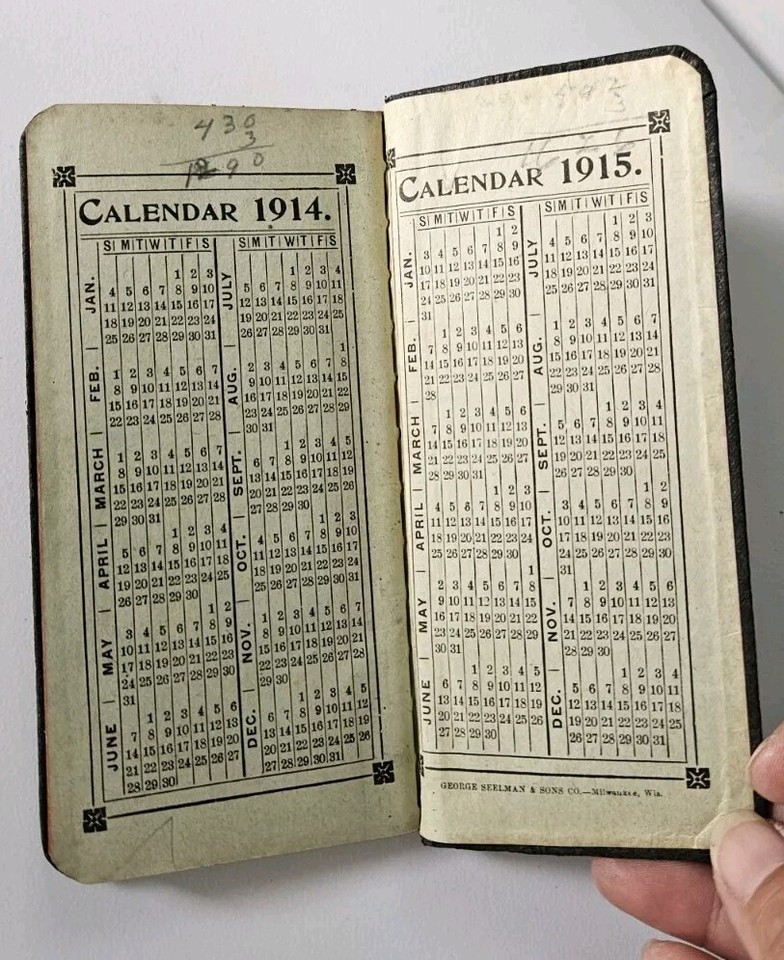 430
3
1290
CALENDAR 1914.
S M T W T F S
JAN.
1 2 3
4 5 6 7 8 9 10
11 12 13 14 15 16 17
18 19 20 21 22 23 24
25 26 27 28 29 30 31
FEB.
1 2 3 4 5 6 7
8 9 10 11 12 13 14
15 16 17 18 19 20 21
22 23 24 25 26 27 28
MARCH
1 2 3 4 5 6 7
8 9 10 11 12 13 14
15 16 17 18 19 20 21
22 23 24 25 26 27 28
29 30 31
APRIL
1 2 3 4
5 6 7 8 9 10 11
12 13 14 15 16 17 18
19 20 21 22 23 24 25
26 27 28 29 30
MAY
1 2
3 4 5 6 7 8 9
10 11 12 13 14 15 16
17 18 19 20 21 22 23
24 25 26 27 28 29 30
31
JUNE
1 2 3 4 5 6
7 8 9 10 11 12 13
14 15 16 17 18 19 20
21 22 23 24 25 26 27
28 29 30
S M T W T F S
JULY
1 2 3 4
5 6 7 8 9 10 11
12 13 14 15 16 17 18
19 20 21 22 23 24 25
26 27 28 29 30 31
AUG.
1
2 3 4 5 6 7 8
9 10 11 12 13 14 15
16 17 18 19 20 21 22
23 24 25 26 27 28 29
30 31
SEPT.
1 2 3 4 5
6 7 8 9 10 11 12
13 14 15 16 17 18 19
20 21 22 23 24 25 26
27 28 29 30
OCT.
1 2 3
4 5 6 7 8 9 10
11 12 13 14 15 16 17
18 19 20 21 22 23 24
25 26 27 28 29 30 31
NOV.
1 2 3 4 5 6 7
8 9 10 11 12 13 14
15 16 17 18 19 20 21
22 23 24 25 26 27 28
29 30
DEC.
1 2 3 4 5
6 7 8 9 10 11 12
13 14 15 16 17 18 19
20 21 22 23 24 25 26
27 28 29 30 31
CALENDAR 1915.
S M T W T F S
JAN.
1 2
3 4 5 6 7 8 9
10 11 12 13 14 15 16
17 18 19 20 21 22 23
24 25 26 27 28 29 30
31
FEB.
1 2 3 4 5 6
7 8 9 10 11 12 13
14 15 16 17 18 19 20
21 22 23 24 25 26 27
28
MARCH
1 2 3 4 5 6
7 8 9 10 11 12 13
14 15 16 17 18 19 20
21 22 23 24 25 26 27
28 29 30 31
APRIL
1 2 3
4 5 6 7 8 9 10
11 12 13 14 15 16 17
18 19 20 21 22 23 24
25 26 27 28 29 30
MAY
1
2 3 4 5 6 7 8
9 10 11 12 13 14 15
16 17 18 19 20 21 22
23 24 25 26 27 28 29
30 31
JUNE
1 2 3 4 5
6 7 8 9 10 11 12
13 14 15 16 17 18 19
20 21 22 23 24 25 26
27 28 29 30
S M T W T F S
JULY
1 2 3
4 5 6 7 8 9 10
11 12 13 14 15 16 17
18 19 20 21 22 23 24
25 26 27 28 29 30 31
AUG.
1 2 3 4 5 6 7
8 9 10 11 12 13 14
15 16 17 18 19 20 21
22 23 24 25 26 27 28
29 30 31
SEPT.
1 2 3 4
5 6 7 8 9 10 11
12 13 14 15 16 17 18
19 20 21 22 23 24 25
26 27 28 29 30
OCT.
1 2
3 4 5 6 7 8 9
10 11 12 13 14 15 16
17 18 19 20 21 22 23
24 25 26 27 28 29 30
31
NOV.
1 2 3 4 5 6
7 8 9 10 11 12 13
14 15 16 17 18 19 20
21 22 23 24 25 26 27
28 29 30
DEC.
1 2 3 4
5 6 7 8 9 10 11
12 13 14 15 16 17 18
19 20 21 22 23 24 25
26 27 28 29 30 31
GEORGE SEELMAN & SONS CO.—Milwaukee, Wis.